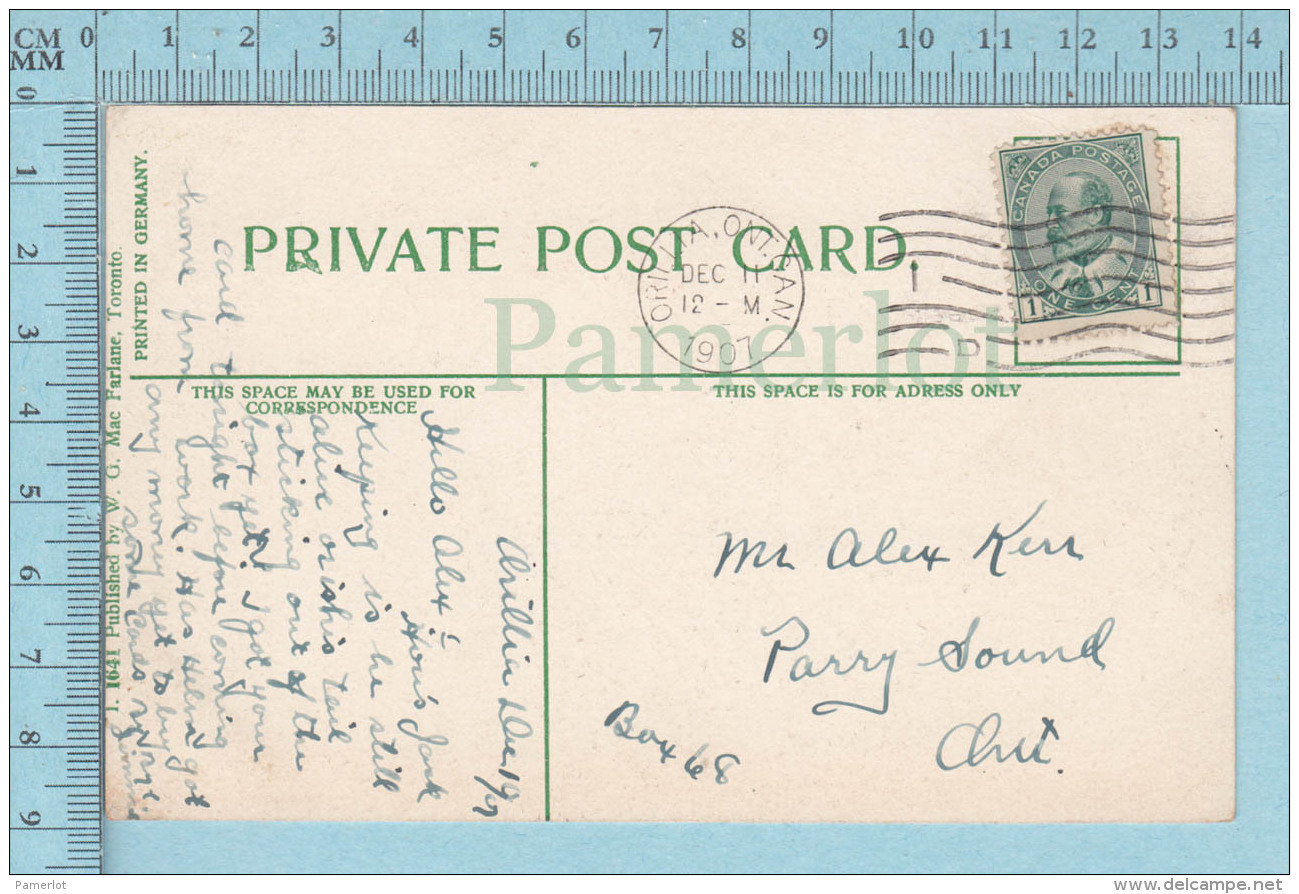 CM 0 1 2 3 4 5 6 7 8 9 10 11 12 13 14
MM
0 1 2 3 4 5 6 7 8 9
PRIVATE POST CARD.
CANADA POSTAGE
1 ONE CENT 1
ORILLIA, ONT. CAN.
DEC 11
12 - M
1907
1
D
Pamerlot
THIS SPACE MAY BE USED FOR
CORRESPONDENCE
THIS SPACE IS FOR ADRESS ONLY
PRINTED IN GERMANY.
I. 1641 Published by W. G. Mac Farlane, Toronto.
Orillia Dec 10/07
Hello Alex :-
How's Jack
Keeping is he still
alive or is his tail
sticking out of the
box yet. I got your
card to-night before coming
home from work. Has Helen got
any money yet to buy
some cards
Mr Alex Kerr
Parry Sound
Box 68
Ont.
Pamerlot
www.delcampe.net